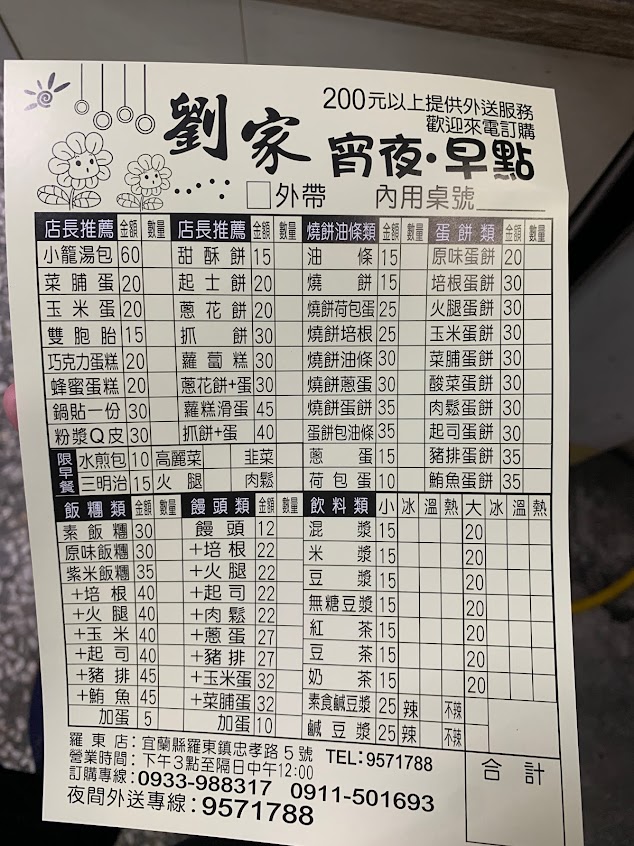 200元以上提供外送服務
歡迎來電訂購
劉家 宵夜·早點
外帶 內用桌號
店長推薦 金額 數量 店長推薦 金額 數量 燒餅油條類 金額 數量 蛋餅類 金額 數量
小籠湯包 60 甜酥餅 15 油條 15 原味蛋餅 20
菜脯蛋 20 起士餅 20 燒餅 15 培根蛋餅 30
玉米蛋 20 蔥花餅 20 燒餅荷包蛋 25 火腿蛋餅 30
雙胞胎 15 抓餅 30 燒餅培根 25 玉米蛋餅 30
巧克力蛋糕 20 蘿蔔糕 30 燒餅油條 30 菜脯蛋餅 30
蜂蜜蛋糕 20 蔥花餅+蛋 30 燒餅蔥蛋 30 酸菜蛋餅 30
鍋貼一份 30 蘿糕滑蛋 45 燒餅蛋餅 35 肉鬆蛋餅 30
粉漿Q皮 30 抓餅+蛋 40 蛋餅包油條 35 起司蛋餅 30
限早餐 水煎包 10 高麗菜 韭菜 蔥蛋 15 豬排蛋餅 35
三明治 15 火腿 肉鬆 荷包蛋 10 鮪魚蛋餅 35
飯糰類 金額 數量 饅頭類 金額 數量 飲料類 小 冰 溫 熱 大 冰 溫 熱
素飯糰 30 饅頭 12 混漿 15 20
原味飯糰 30 +培根 22 米漿 15 20
紫米飯糰 35 +火腿 22 豆漿 15 20
+培根 40 +起司 22 無糖豆漿 15 20
+火腿 40 +肉鬆 22 紅茶 15 20
+玉米 40 +蔥蛋 27 豆茶 15 20
+起司 40 +豬排 27 奶茶 15 20
+豬排 45 +玉米蛋 32 素食鹹豆漿 25 辣 不辣
+鮪魚 45 +菜脯蛋 32 鹹豆漿 25 辣 不辣
加蛋 5 加蛋 10 合計
羅東店:宜蘭縣羅東鎮忠孝路5號 TEL:9571788
營業時間:下午3點至隔日中午12:00
訂購專線:0933-988317 0911-501693
夜間外送專線:9571788